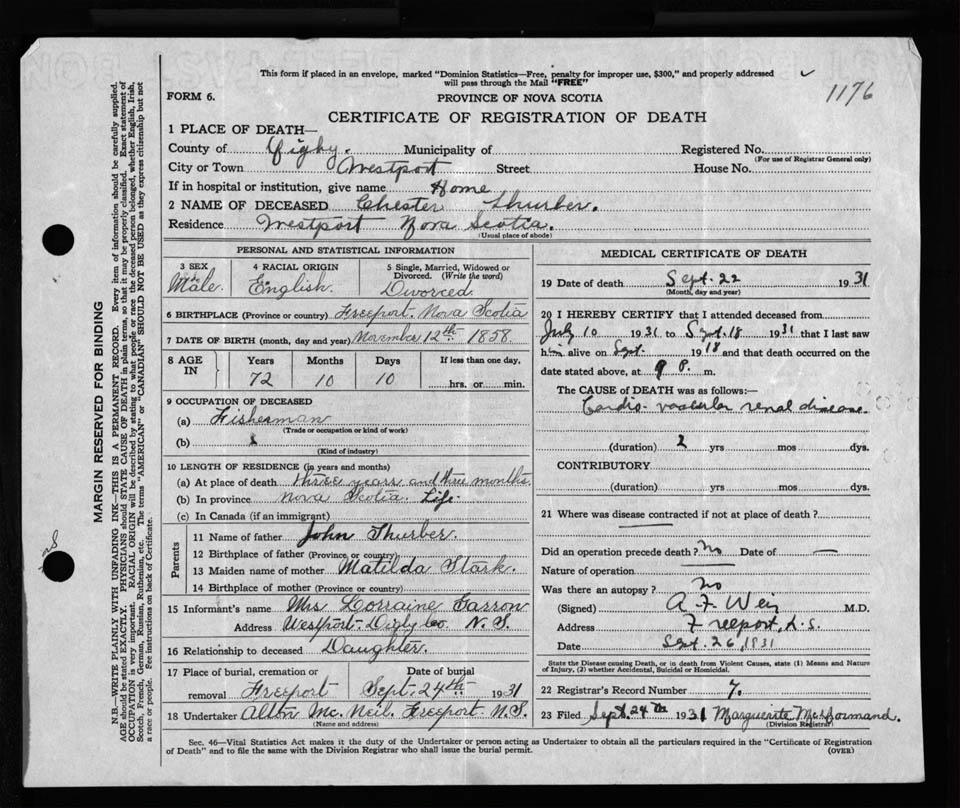 This form if placed in an envelope, marked "Dominion Statistics—Free, penalty for improper use, $300," and properly addressed
will pass through the Mail "FREE"
1176
FORM 6.
PROVINCE OF NOVA SCOTIA
CERTIFICATE OF REGISTRATION OF DEATH
1 PLACE OF DEATH—
County of Digby. Municipality of Registered No.
(For use of Registrar General only)
City or Town Westport Street House No.
If in hospital or institution, give name Home
2 NAME OF DECEASED Chester Thurber.
Residence Westport Nova Scotia.
(Usual place of abode)
PERSONAL AND STATISTICAL INFORMATION
3 SEX
Male
4 RACIAL ORIGIN
English.
5 Single, Married, Widowed or
Divorced. (Write the word)
Divorced
6 BIRTHPLACE (Province or country) Freeport. Nova Scotia
7 DATE OF BIRTH (month, day and year) November 12th 1858.
8 AGE
IN
Years Months Days If less than one day,
72 10 10 hrs. or min.
9 OCCUPATION OF DECEASED
(a) Fisherman
(Trade or occupation or kind of work)
(b)
(Kind of industry)
10 LENGTH OF RESIDENCE (in years and months)
(a) At place of death three years and three months.
(b) In province Nova Scotia. Life.
(c) In Canada (if an immigrant)
Parents
11 Name of father John Thurber.
12 Birthplace of father (Province or country)
13 Maiden name of mother Matilda Stark.
14 Birthplace of mother (Province or country)
15 Informant's name Mrs Lorraine Garron
Address Westport. Digby Co N. S.
16 Relationship to deceased Daughter.
17 Place of burial, cremation or Date of burial
removal Freeport Sept. 24th 1931
18 Undertaker Alton Mc. Neil. Freeport N.S.
(Name and address)
MEDICAL CERTIFICATE OF DEATH
19 Date of death Sept. 22 1931
(Month, day and year)
20 I HEREBY CERTIFY that I attended deceased from
July 10 1931 to Sept. 18 1931 that I last saw
him alive on Sept. 1918 and that death occurred on the
date stated above, at 9 P. m.
The CAUSE OF DEATH was as follows:—
Cardio-vascular renal disease.
(duration) 2 yrs mos dys.
CONTRIBUTORY
(duration) yrs mos dys.
21 Where was disease contracted if not at place of death?
Did an operation precede death? No Date of —
Nature of operation
Was there an autopsy? No
(Signed) A F Weir M.D.
Address Freeport, N.S.
Date Sept. 26, 1931
State the Disease causing Death, or in death from Violent Causes, state (1) Means and Nature
of Injury, (2) whether Accidental, Suicidal or Homicidal.
22 Registrar's Record Number 7.
23 Filed Sept. 24th 1931 Marguerite McDormand.
(Division Registrar)
Sec. 46—Vital Statistics Act makes it the duty of the Undertaker or person acting as Undertaker to obtain all the particulars required in the "Certificate of Registration
of Death" and to file the same with the Division Registrar who shall issue the burial permit.
(OVER)
MARGIN RESERVED FOR BINDING
N.B.—WRITE PLAINLY WITH UNFADING INK—THIS IS A PERMANENT RECORD. Every item of information should be carefully supplied.
AGE should be stated EXACTLY. PHYSICIANS should STATE CAUSE OF DEATH in plain terms, so that it may be properly classified. Exact statement of
OCCUPATION is very important. RACIAL ORIGIN will be described by stating to what people or race the deceased person belonged, whether English, Irish,
Scotch, French, German, Russian, Ruthenian, etc. The terms "AMERICAN" or "CANADIAN" SHOULD NOT BE USED as they express citizenship but not
a race or people. See instructions on back of Certificate.